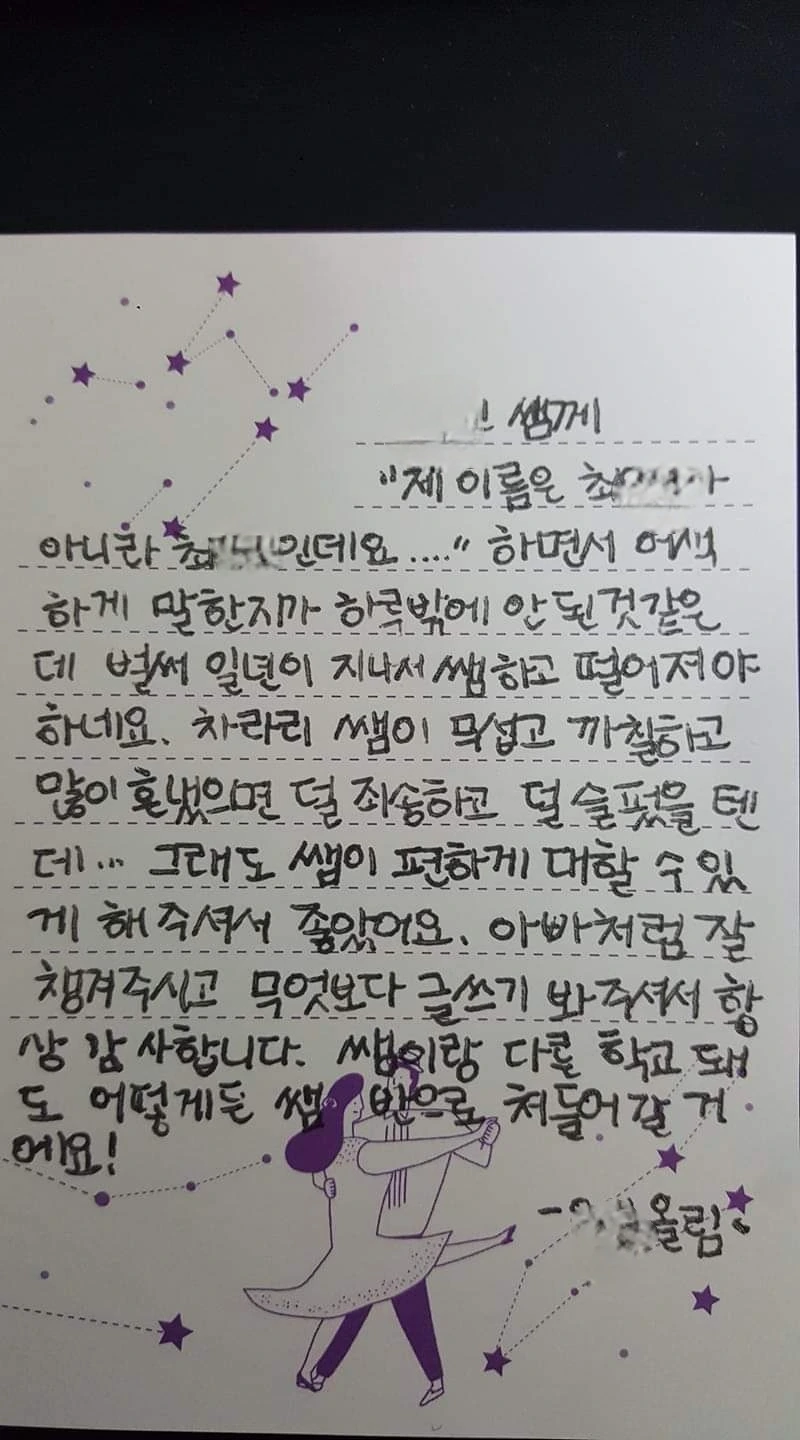 쌤께
"제 이름은 최
아니라 최 인데요...." 하면서 어색
하게 말한지가 하루밖에 안된것같은
데 벌써 일년이 지나서 쌤하고 떨어져야
하네요. 차라리 쌤이 무섭고 까칠하고
많이 혼냈으면 덜 죄송하고 덜 슬펐을 텐
데... 그래도 쌤이 편하게 대할 수 있
게 해주셔서 좋았어요. 아빠처럼 잘
챙겨주시고 무엇보다 글쓰기 봐주셔서 항
상 감사합니다. 쌤이랑 다른 학교 돼
도 어떻게든 쌤 반으로 쳐들어갈 거
에요!
올림